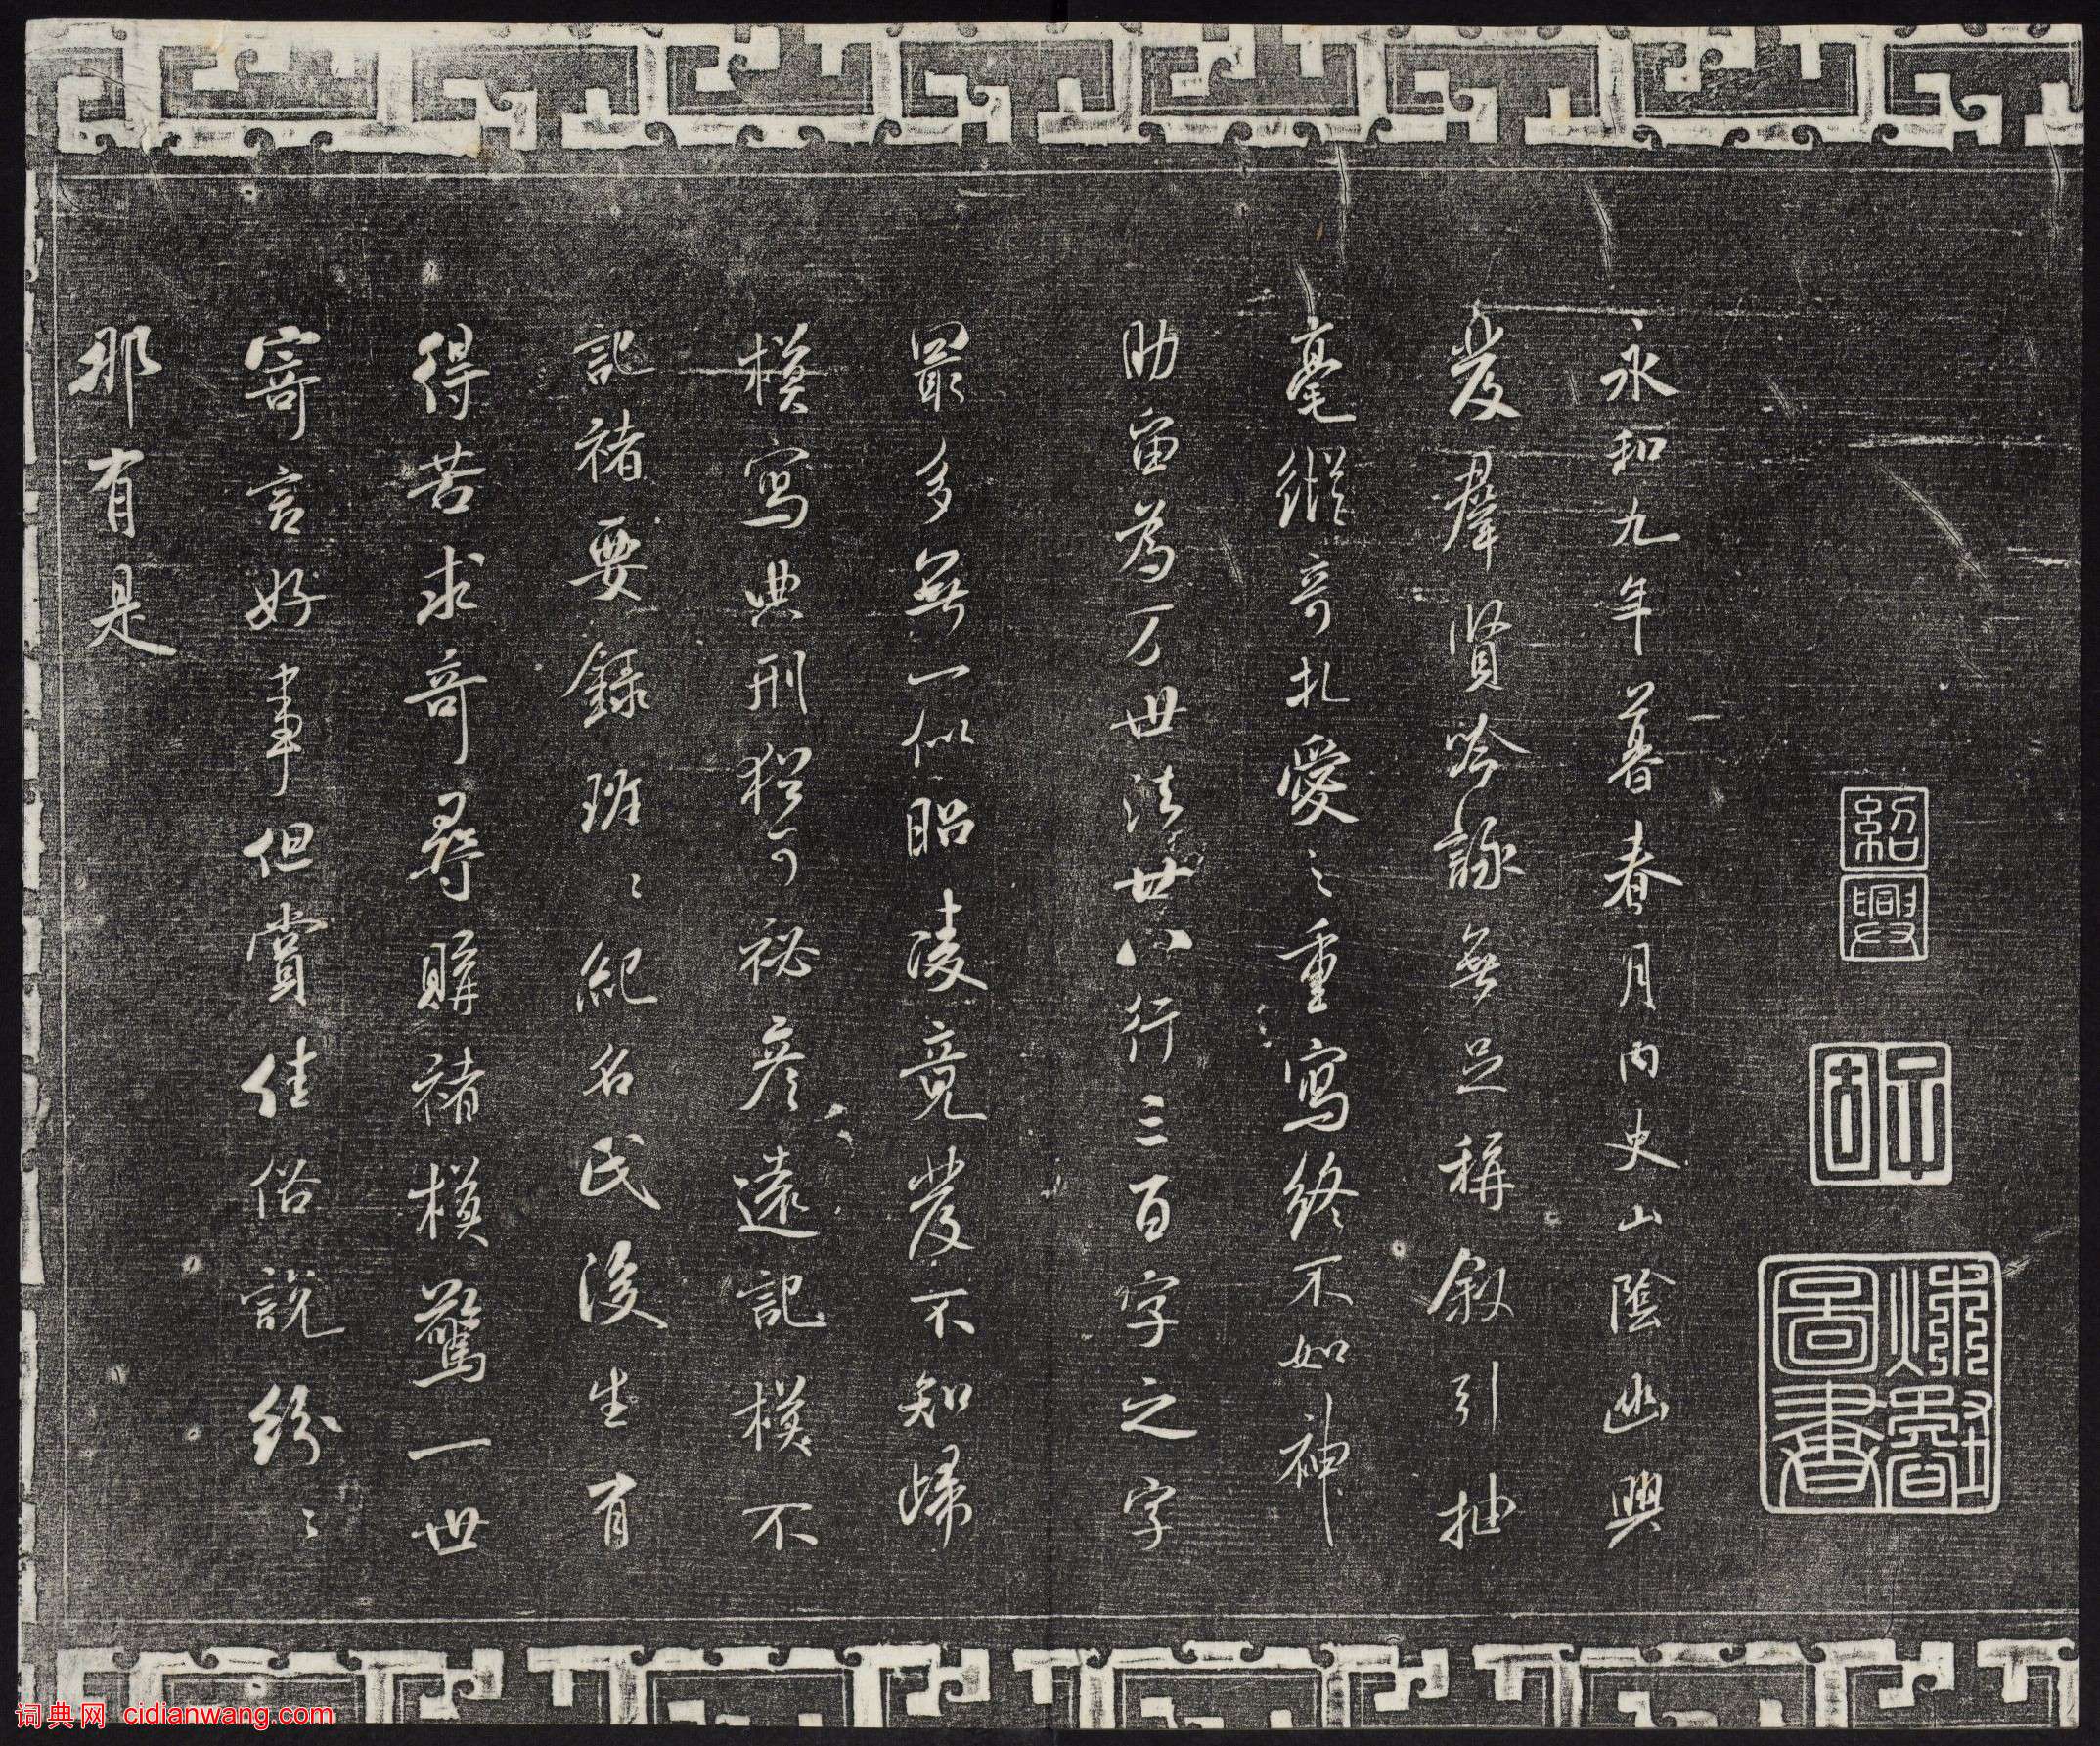 紹興
圖書
永和九年暮春月内史山陰幽興
發羣賢吟詠無足稱叙引抽
毫縱奇札愛之重寫終不如神
助留為万世法廿八行三百字之字
最多無一似昭陵竟發不知歸
模寫典刑猶可祕彦遠記模不
記褚要録班〻紀名氏後生有
得苦求奇尋購褚模驚一世
寄言好事但賞佳俗說紛〻
那有是
词典网 cidianwang.com